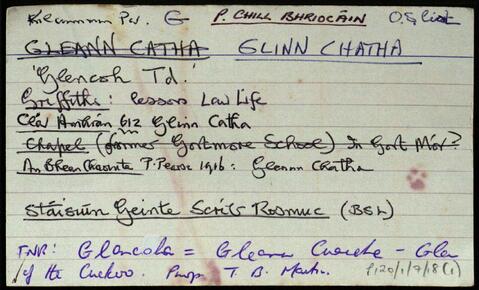 Kilcummin Par. G P. CHILL BHRIOCÁIN O.S. List
GLEANN CATHA GLINN CHATHA
'Glencoh Td.'
Griffiths: lessors Law Life
Clár Amhrán 612 Glinn Catha
Chapel (former Gortmore School) In Gort Mór?
An Bhean Chaointe P. Pearse 1916: Gleann Chatha
Stáisiún Geinte Scríb Rosmuc (BSL)
TNR: Glencoha = Gleann Cuaiche - Glen
/of the Cuckoo. Prop. T. B. Martin.
P120/1/7/18(1)